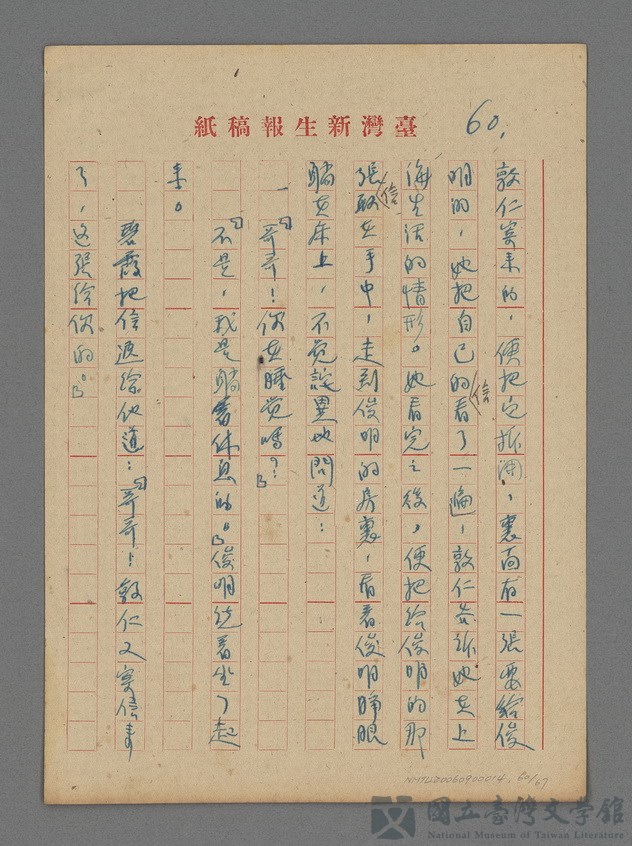 紙稿報生新灣臺
60.
敦仁寄来的，便把它拆開，裏面有一張要給俊
明的，她把自己的信看了一遍，敦仁告訴她在上
海生活的情形。她看完之後，便把給俊明的那
張信取在手中，走到俊明的房裏，看着俊明睜眼
躺在床上，不覺詫異地問道：
「哥哥！你在睡覺嗎？」
「不是，我是躺着休息的。」俊明說着坐了起
来。
碧霞把信遞給他道：「哥哥！敦仁又寄信来
了，这張給你的。」
NMTL20060900014, 60/67
國立臺灣文學館
National Museum of Taiwan Literature